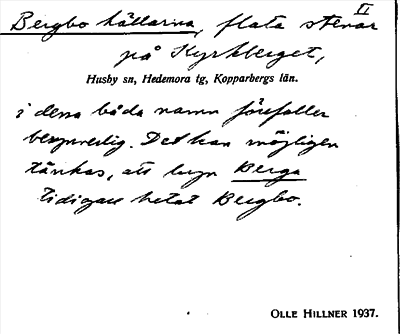 II
Bergbo hällarna, flata stenar
på Kyrkberget,
Husby sn, Hedemora tg, Kopparbergs län.
i dessa båda namn förefaller
besynnerlig. Det kan möjligen
tänkas, att byn Berga
tidigare hetat Bergbo.
OLLE HILLNER 1937.